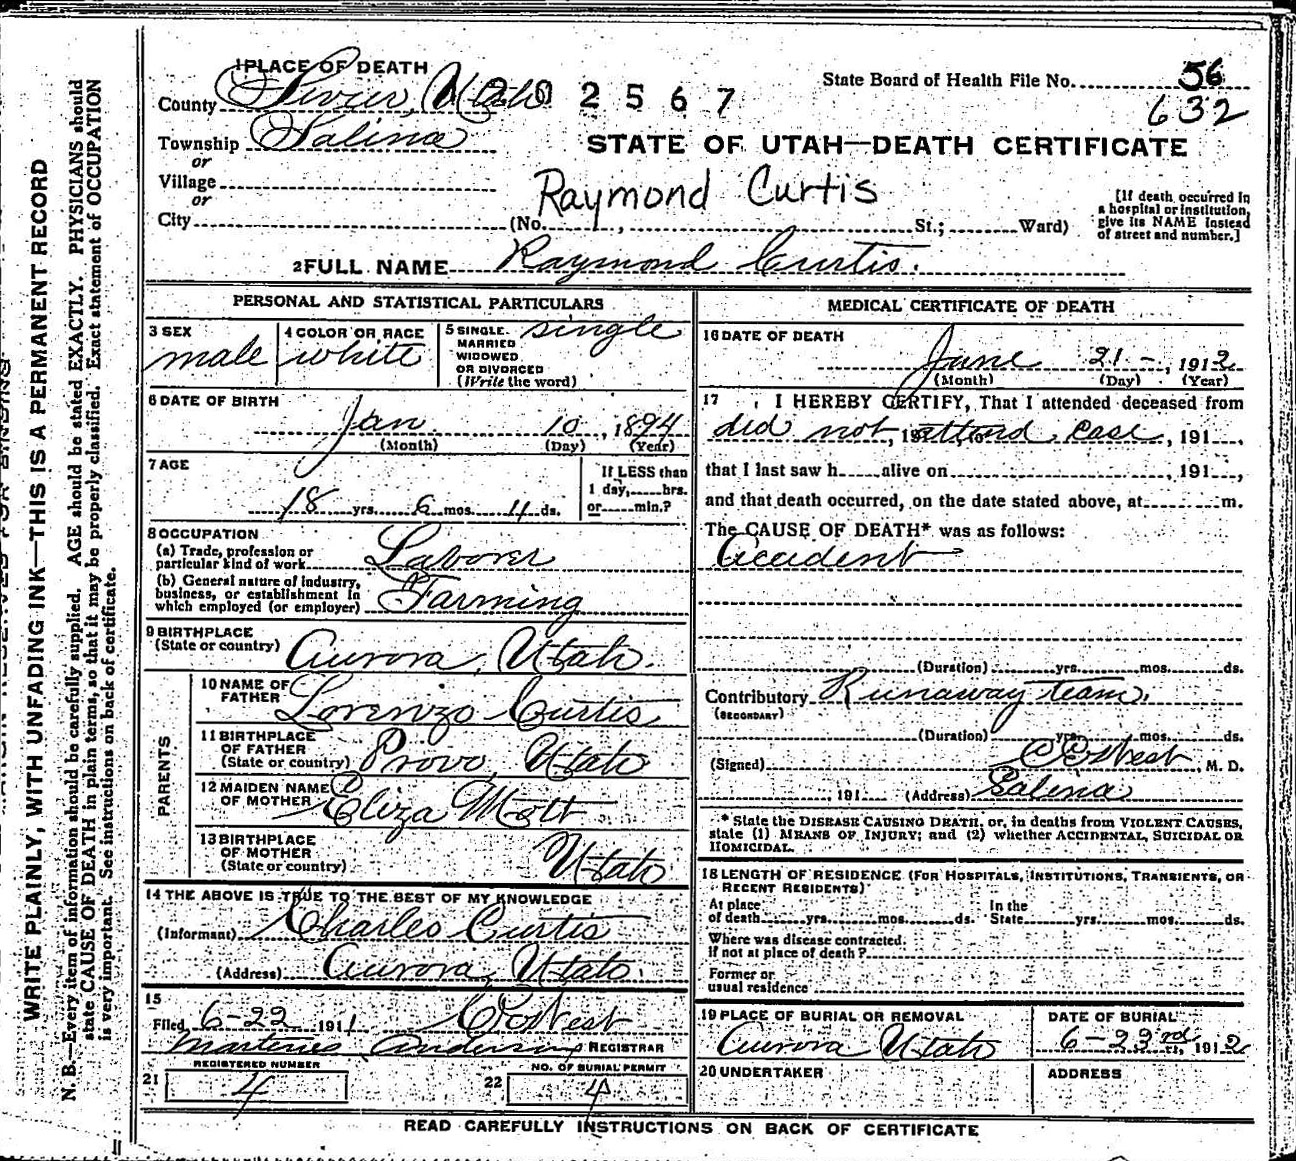 1 PLACE OF DEATH
State Board of Health File No. 56
County Sevier, Utah 2 5 6 7
632
Township Salina
STATE OF UTAH—DEATH CERTIFICATE
or
Village
or
Raymond Curtis
City (No. , St.; Ward)
[If death occurred in
a hospital or institution,
give its NAME instead
of street and number.]
2 FULL NAME Raymond Curtis.
PERSONAL AND STATISTICAL PARTICULARS
3 SEX
male
4 COLOR OR RACE
white
5 SINGLE. single
MARRIED
WIDOWED
OR DIVORCED
(Write the word)
6 DATE OF BIRTH
Jan. 10, 1894
(Month) (Day) (Year)
7 AGE
18 yrs. 6 mos. 11 ds.
If LESS than
1 day, hrs.
or min.?
8 OCCUPATION
(a) Trade, profession or
particular kind of work Laborer
(b) General nature of industry,
business, or establishment in
which employed (or employer) Farming
9 BIRTHPLACE
(State or country) Aurora, Utah.
PARENTS
10 NAME OF
FATHER Lorenzo Curtis
11 BIRTHPLACE
OF FATHER
(State or country) Provo, Utah
12 MAIDEN NAME
OF MOTHER Eliza Mott
13 BIRTHPLACE
OF MOTHER
(State or country) Utah
14 THE ABOVE IS TRUE TO THE BEST OF MY KNOWLEDGE
(Informant) Charles Curtis
(Address) Aurora, Utah.
15
Filed 6-22 1911 West
Martenus Anderson REGISTRAR
REGISTERED NUMBER
21 4
NO. OF BURIAL PERMIT
22 4
MEDICAL CERTIFICATE OF DEATH
16 DATE OF DEATH
June 21-, 1912
(Month) (Day) (Year)
17 I HEREBY CERTIFY, That I attended deceased from
did not, 191 attend case, 191 ,
that I last saw h alive on , 191 ,
and that death occurred, on the date stated above, at m.
The CAUSE OF DEATH* was as follows:
Accident
(Duration) yrs. mos. ds.
Contributory Runaway team.
(SECONDARY)
(Duration) yrs. mos. ds.
(Signed) West, M. D.
191 (Address) Salina
* State the DISEASE CAUSING DEATH, or, in deaths from VIOLENT CAUSES,
state (1) MEANS OF INJURY; and (2) whether ACCIDENTAL, SUICIDAL OR
HOMICIDAL.
18 LENGTH OF RESIDENCE (FOR HOSPITALS, INSTITUTIONS, TRANSIENTS, OR
RECENT RESIDENTS)
At place
of death yrs. mos. ds.
In the
State yrs. mos. ds.
Where was disease contracted,
if not at place of death?
Former or
usual residence
19 PLACE OF BURIAL OR REMOVAL
Aurora Utah
DATE OF BURIAL
6-23rd, 1912
20 UNDERTAKER
ADDRESS
READ CAREFULLY INSTRUCTIONS ON BACK OF CERTIFICATE
WRITE PLAINLY, WITH UNFADING INK—THIS IS A PERMANENT RECORD
N. B.—Every item of information should be carefully supplied. AGE should be stated EXACTLY. PHYSICIANS should
state CAUSE OF DEATH in plain terms, so that it may be properly classified. Exact statement of OCCUPATION
is very important. See instructions on back of certificate.